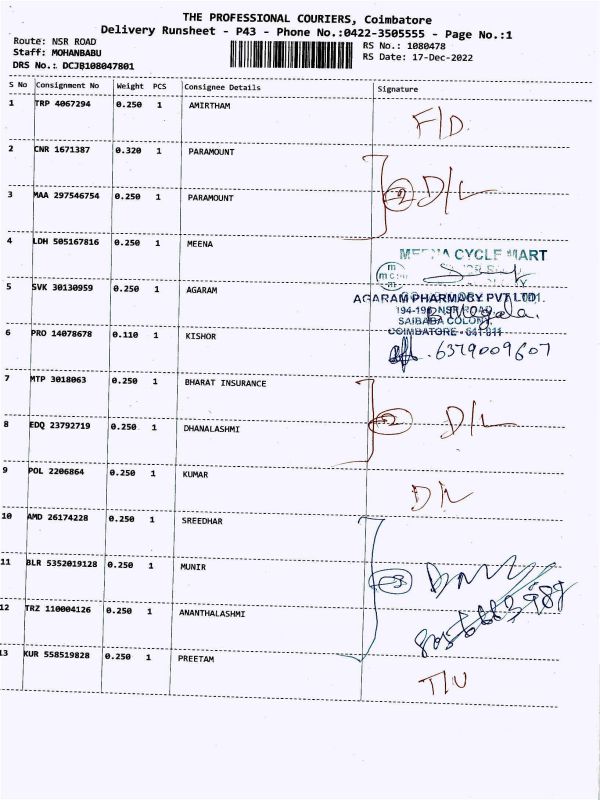 THE PROFESSIONAL COURIERS, Coimbatore
Delivery Runsheet - P43 - Phone No.:0422-3505555 - Page No.:1
Route: NSR ROAD
RS No.: 1080478
Staff: MOHANBABU
RS Date: 17-Dec-2022
DRS No.: DCJB108047801
S No Consignment No Weight PCS Consignee Details Signature
1 TRP 4067294 0.250 1 AMIRTHAM F/D.
2 CNR 1671387 0.320 1 PARAMOUNT
2 D/L
3 MAA 297546754 0.250 1 PARAMOUNT
4 LDH 505167816 0.250 1 MEENA
MEENA CYCLE MART
5 SVK 30130959 0.250 1 AGARAM
AGARAM PHARMACY PVT LTD
194-196 NSR ROAD
SAIBABA COLONY
COIMBATORE - 641 011
6 PRO 14078678 0.110 1 KISHOR
6379009607
7 MTP 3018063 0.250 1 BHARAT INSURANCE
2 D/L
8 EDQ 23792719 0.250 1 DHANALASHMI
9 POL 2206864 0.250 1 KUMAR
D/L
10 AMD 26174228 0.250 1 SREEDHAR
11 BLR 5352019128 0.250 1 MUNIR
3
12 TRZ 110004126 0.250 1 ANANTHALASHMI
13 KUR 558519828 0.250 1 PREETAM
T/U